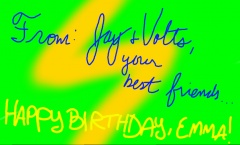 From: Jay & Volts,
your
best friends...
HAPPY BIRTHDAY, EMMA!